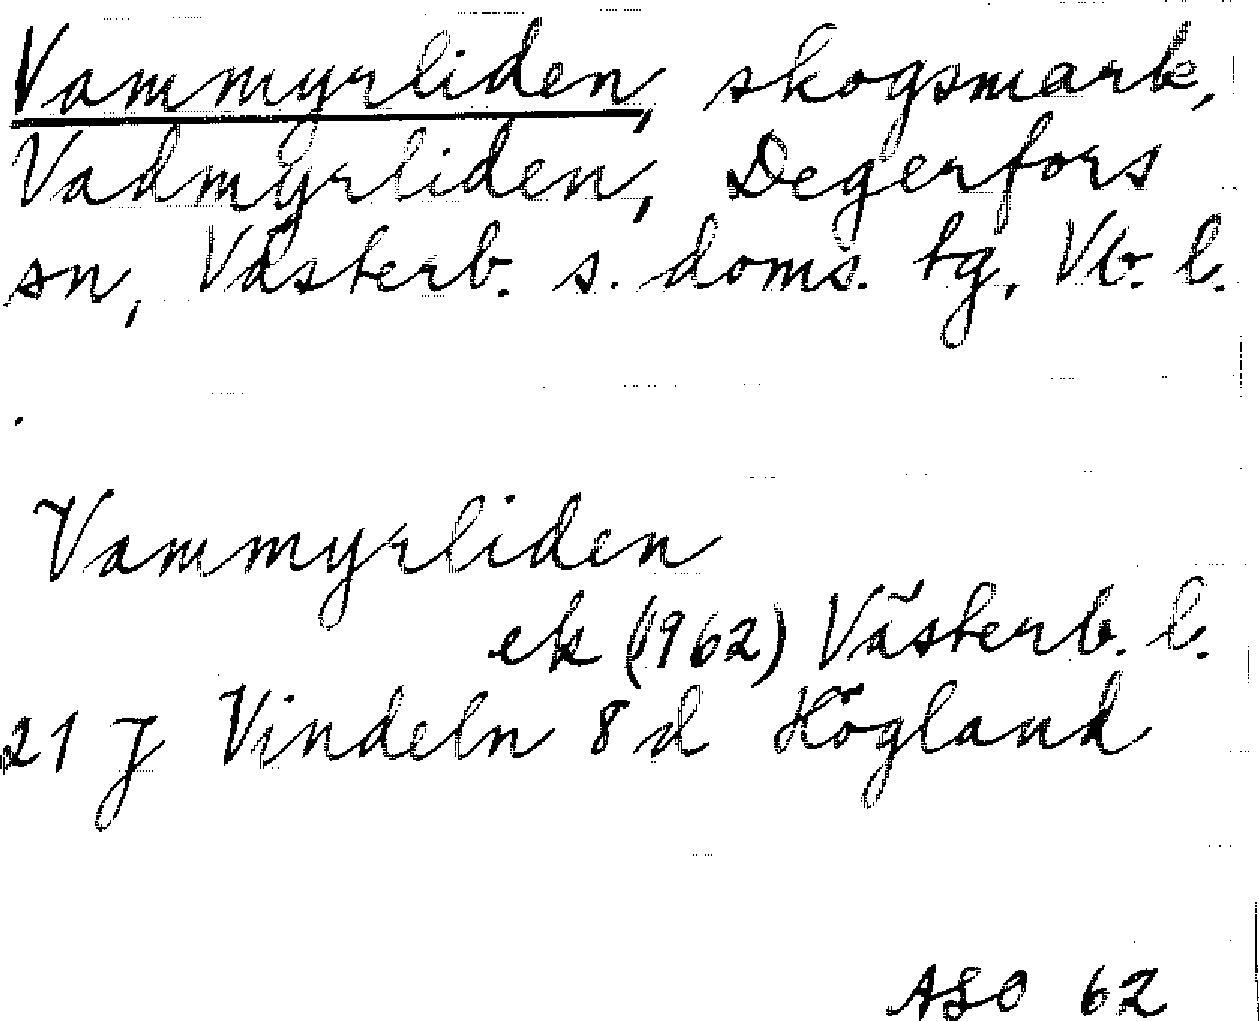 Vammyrliden, skogsmark,
Vadmyrliden, Degerfors
sn, Västerb. s. doms. tg, Vb. l.
Vammyrliden
ek (1962) Västerb. l.
21 J Vindeln 8 d Högland
ASO 62